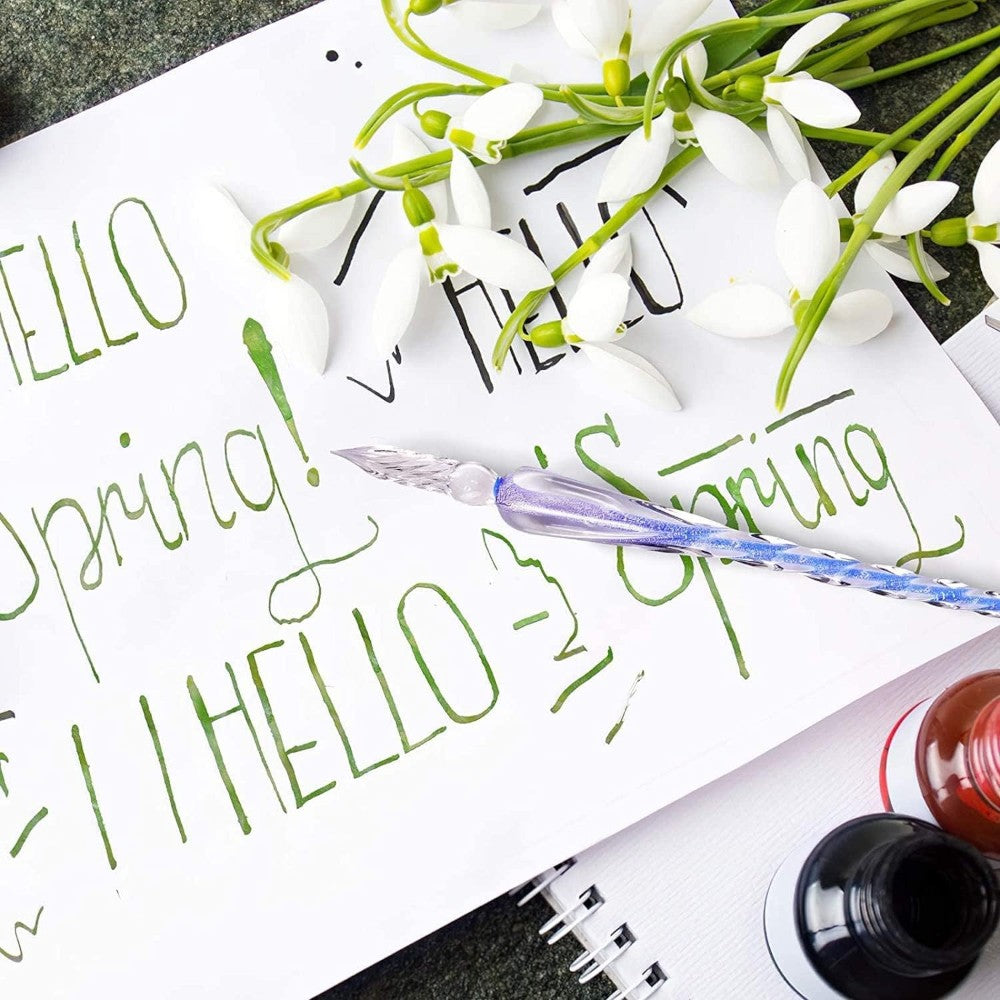 HELLO
Spring!
Spring
HELLO